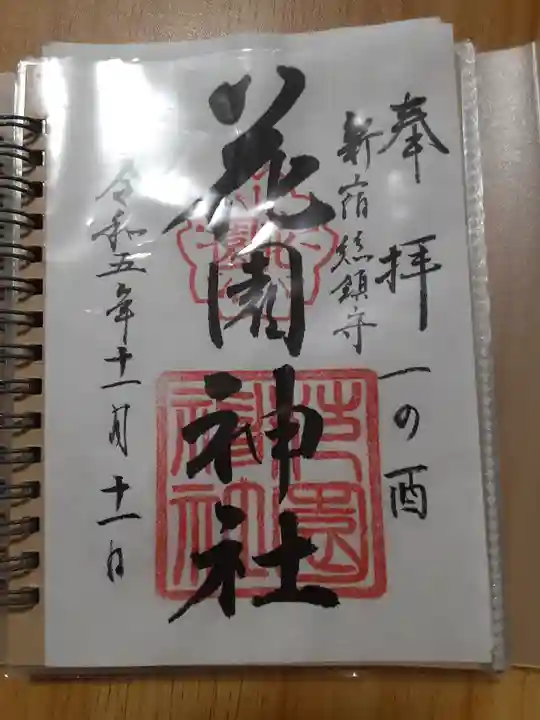 奉拝 一の酉
新宿総鎮守
花園神社
花園神社
令和五年十一月十一日